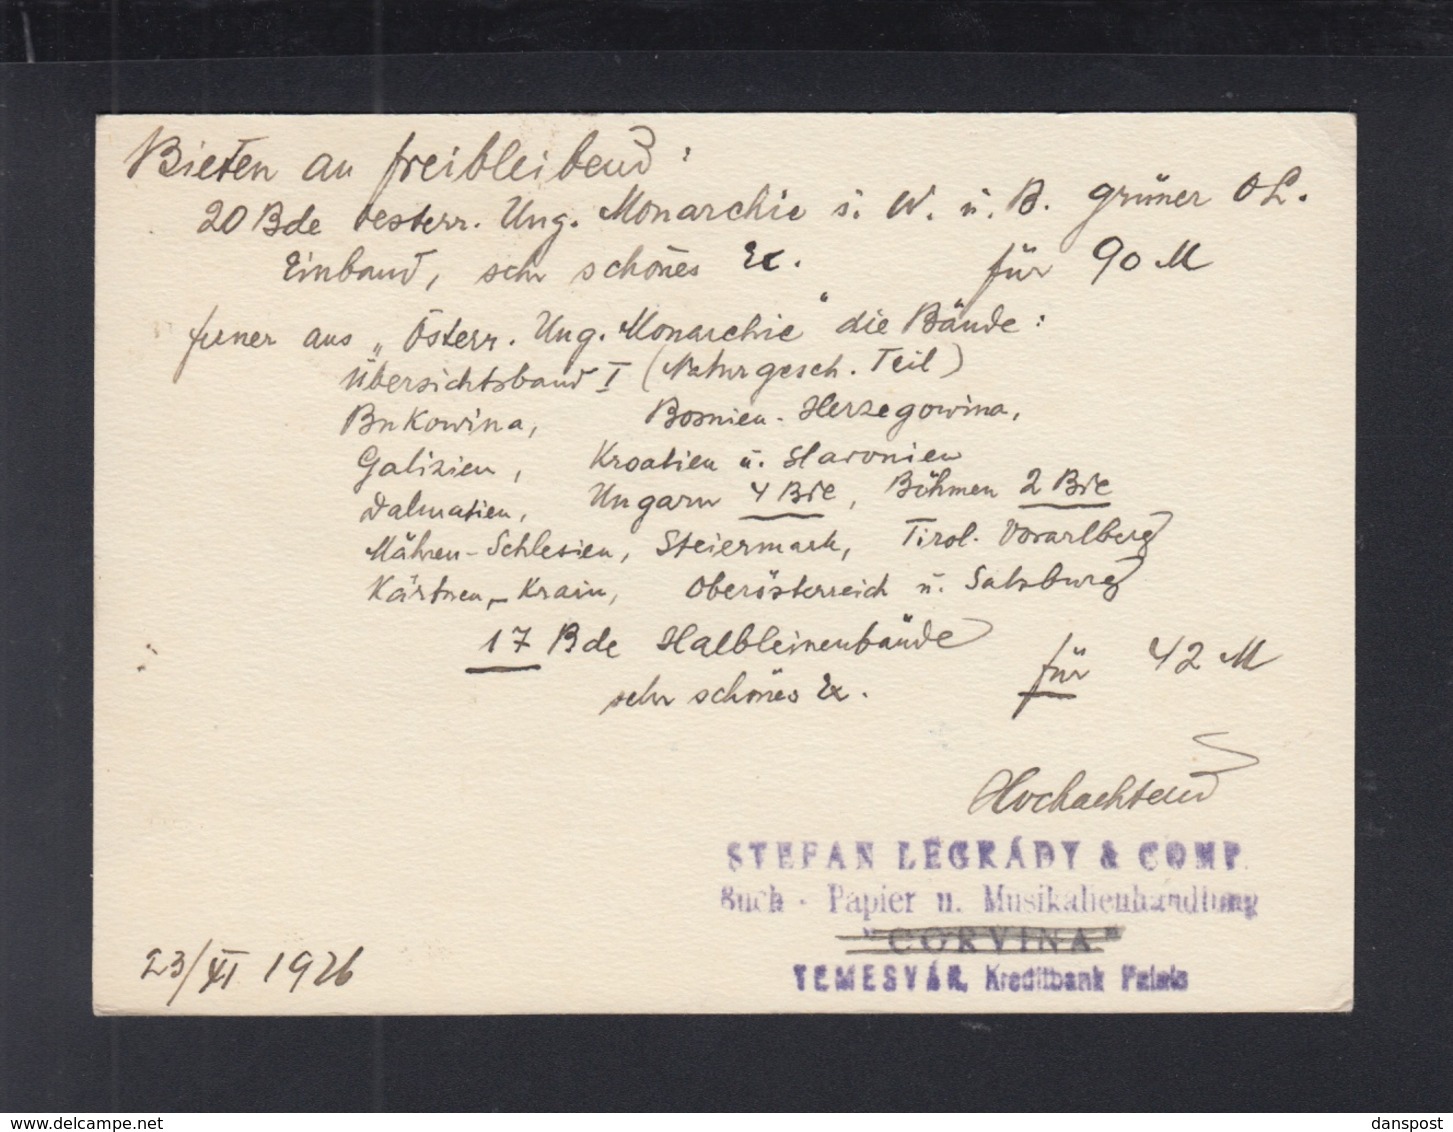 Bieten an freibleibend:
20 Bde oesterr. Ung. Monarchie i. W. u. B. grüner OL.
Einband, sehr schönes Ex. für 90 M
ferner aus „Österr. Ung. Monarchie" die Bände:
Übersichtsband I (Naturgesch. Teil)
Bukowina, Bosnien-Herzegowina,
Galizien, Kroatien u. Slavonien
Dalmatien, Ungarn 4 Bde, Böhmen 2 Bde
Mähren-Schlesien, Steiermark, Tirol. Vorarlberg
Kärtnen,-Krain, Oberösterreich u. Salzburg
17 Bde Halbleinenbände
sehr schönes Ex. für 42 M
Hochachtend
STEFAN LEGRÁDY & COMP.
Buch - Papier u. Musikalienhandlung
"CORVINA"
TEMESVÁR, Kreditbank Palais
23/XI 1926
delcampe.net
danspost